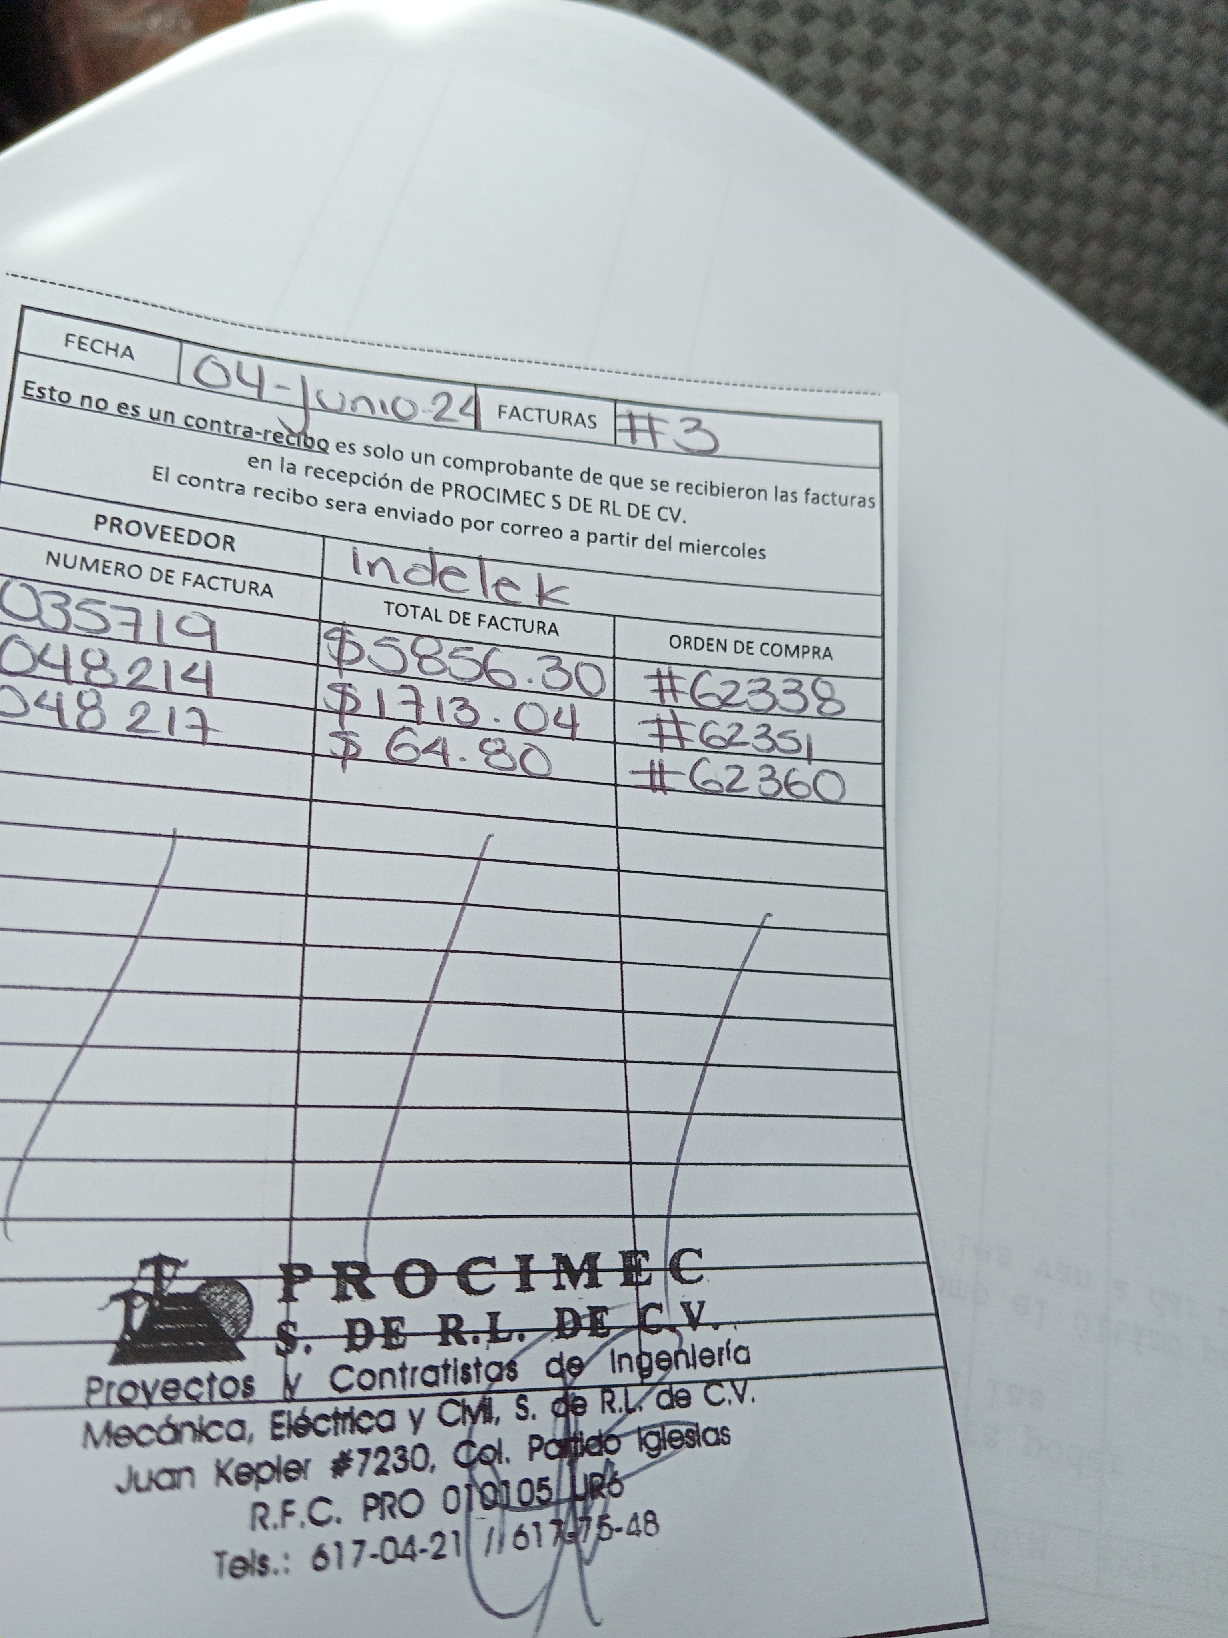 FECHA 04-Junio-24 FACTURAS #3
Esto no es un contra-recibo es solo un comprobante de que se recibieron las facturas
en la recepción de PROCIMEC S DE RL DE CV.
El contra recibo sera enviado por correo a partir del miercoles
PROVEEDOR indelek
NUMERO DE FACTURA TOTAL DE FACTURA ORDEN DE COMPRA
035719 $5856.30 #62338
048214 $1713.04 #62351
048217 $ 64.80 #62360
PROCIMEC
S. DE R.L. DE C.V.
Proyectos y Contratistas de Ingeniería
Mecánica, Eléctrica y Civil, S. de R.L. de C.V.
Juan Kepler #7230, Col. Partido Iglesias
R.F.C. PRO 010105 UR6
Tels.: 617-04-21 // 617-75-48